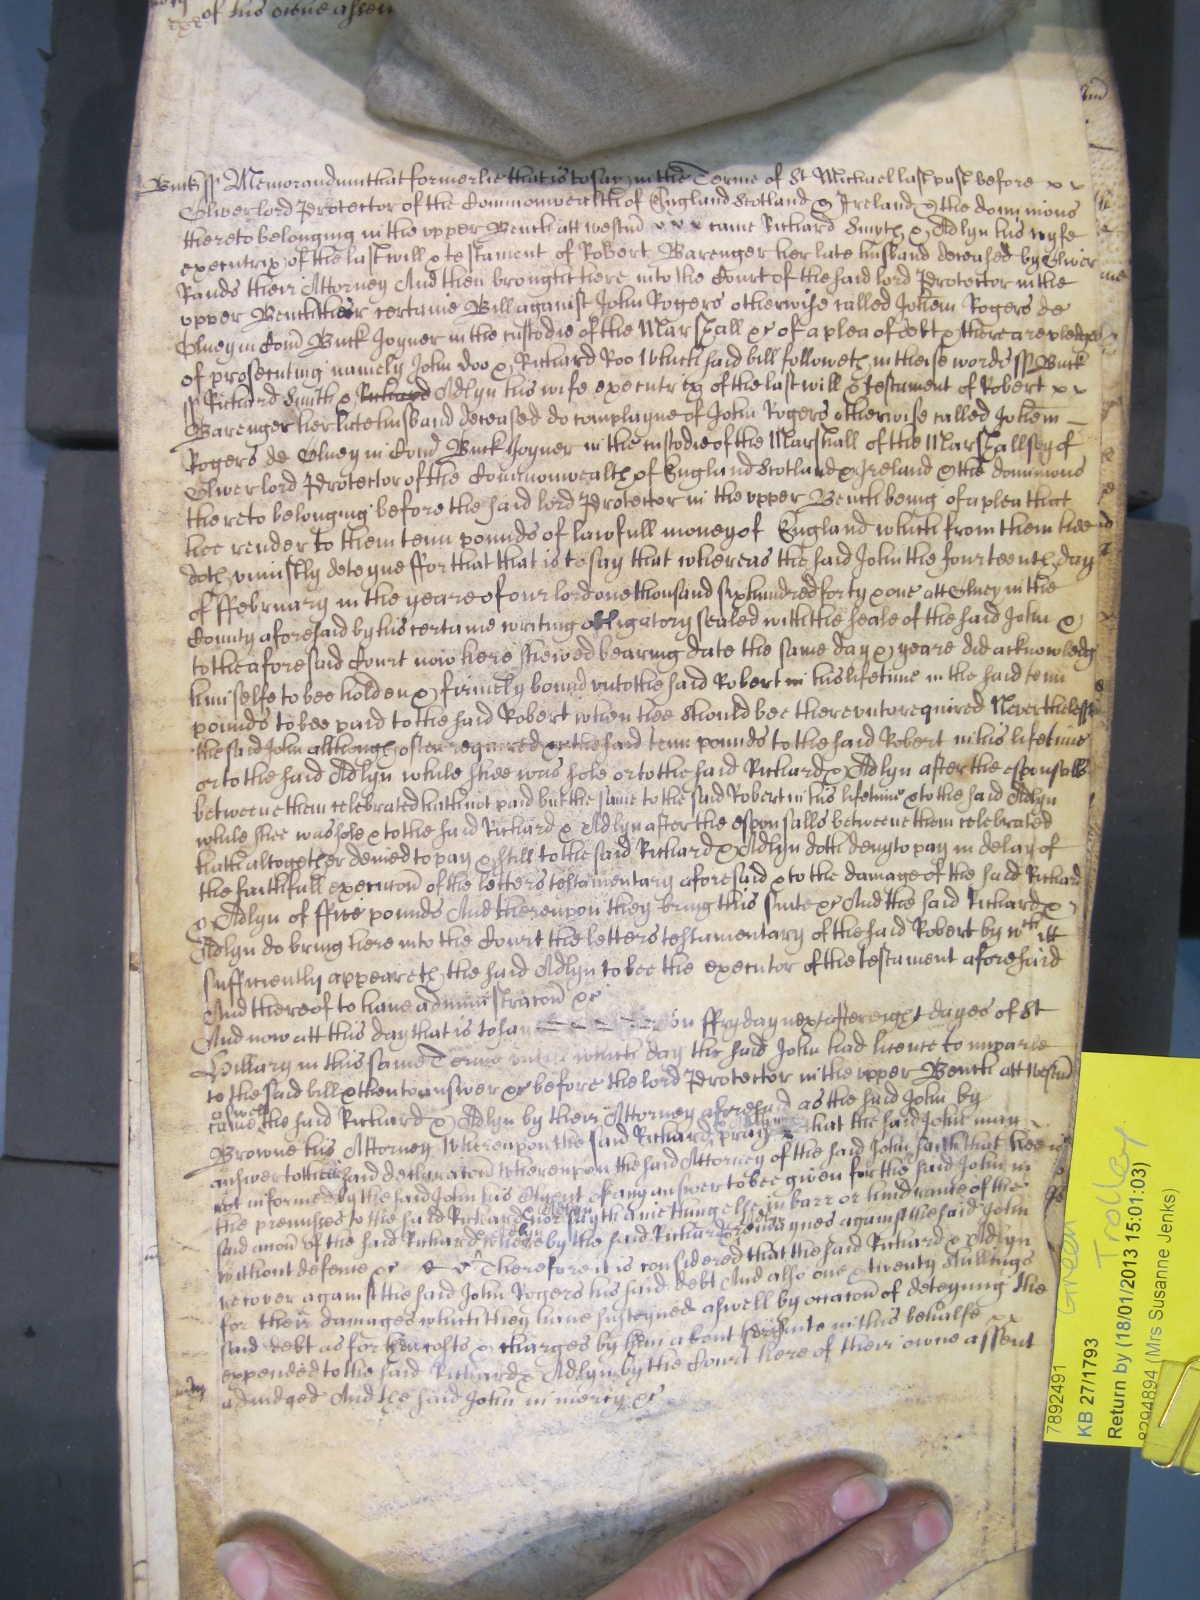 of his owne assen
Bucks ss Memorandum that formerlie that is to say in the Terme of St Michael last past before x x
Oliver lord Protector of the Commonwealth of England Scotland & Ireland & the dominions
thereto belonging in the upper Bench att westm̄ x x x came Richard Smyth & Adlyn his wyfe
executrix of the last will & testament of Robert Barenger her late husband deceased by Oliver
Rands their Attorney And then brought here into the Court of the said lord Protector in the
upper Bench their certaine Bill against John Rogers otherwise called Johem Rogers de
Olney in Com̄ Buck Joyner in the custodie of the Marshall &c of a plea of debt & there are pledges
of prosecuting namely John Doo & Richard Roo Which said bill followeth in theise words ss Buck
ss Richard Smith & Richard Adlyn his wife executrix of the last will & testament of Robert x x
Barenger her late husband deceased do complayne of John Rogers otherwise called Johem
Rogers de Olney in Com̄ Buck Joyner in the custodie of the Marshall of the Marshallsey of
Oliver lord Protector of the Commonwealth of England Scotland & Ireland & the dominions
thereto belonging before the said lord Protector in the upper Bench being of a plea that
hee render to them tenn pounds of lawfull money of England which from them hee
doth uniustly deteyne ffor that that is to say that whereas the said John the fourteenth day
of ffebruary in the yeare of our lord one thousand six hundred forty & one att Olney in the
County aforesaid by his certaine writing obligatory sealed with the seale of the said John &
to the aforesaid Court now here shewed bearing date the same day & yeare did acknowledg
himselfe to bee holden & firmely bound unto the said Robert in his lifetime in the said tenn
pounds to bee paid to the said Robert when hee should bee thereunto required Neverthelesse
the said John although often required &c the said tenn pounds to the said Robert in his lifetime
or to the said Adlyn while shee was sole or to the said Richard & Adlyn after the espousalls
betweene them celebrated hath not paid but the same to the said Robert in his lifetime & to the said Adlyn
while shee was sole & to the said Richard & Adlyn after the espousalls betweene them celebrated
hath altogether denied to pay & still to the said Richard & Adlyn doth deny to pay in delay of
the faithfull execucon̄ of the letters testamentary aforesaid & to the damage of the said Richard
& Adlyn of ffive pounds And thereupon they bring this suite &c And the said Richard &
Adlyn do bring here into the Court the letters testamentary of the said Robert by wch itt
sufficiently appeareth the said Adlyn to bee the executor of the testament aforesaid
And thereof to have administracon̄ &c
And now att this day that is to say on ffryday next after eight dayes of St
Hillary in this same Terme untill which day the said John had licence to imparle
to the said bill & then to answer &c before the lord Protector in the upper Bench att Westm̄
came aswell the said Richard & Adlyn by their Attorney aforesaid as the said John by
Browne his Attorney Whereupon the said Richard & Adlyn pray that the said John may
answer to their said declaracon̄ Whereupon the said Attorney of the said John saith that hee is
not informed by the said John his Clyent of any answer to bee given for the said John in
the premisses to the said Richard & Adlyn nor sayth any thing else in barr or hindrance of the
said accon̄ of the said Richard & Adlyn whereby the said Richard & Adlyn remaynes against the said John
without defence &c Therefore it is considered that the said Richard & Adlyn
recover against the said John Rogers his said debt And also one & twenty shillings
for their damages which they have susteyned aswell by occacon̄ of deteyning the
said debt as for their costs & charges by them about their suite in this behalfe x x
expended to the said Richard & Adlyn by the Court here of their owne assent
adiudged And the said John in mercy &c
mcy
7892491 Green
KB 27/1793 Trolley
Return by (18/01/2013 15:01:03)
8294894 (Mrs Susanne Jenks)